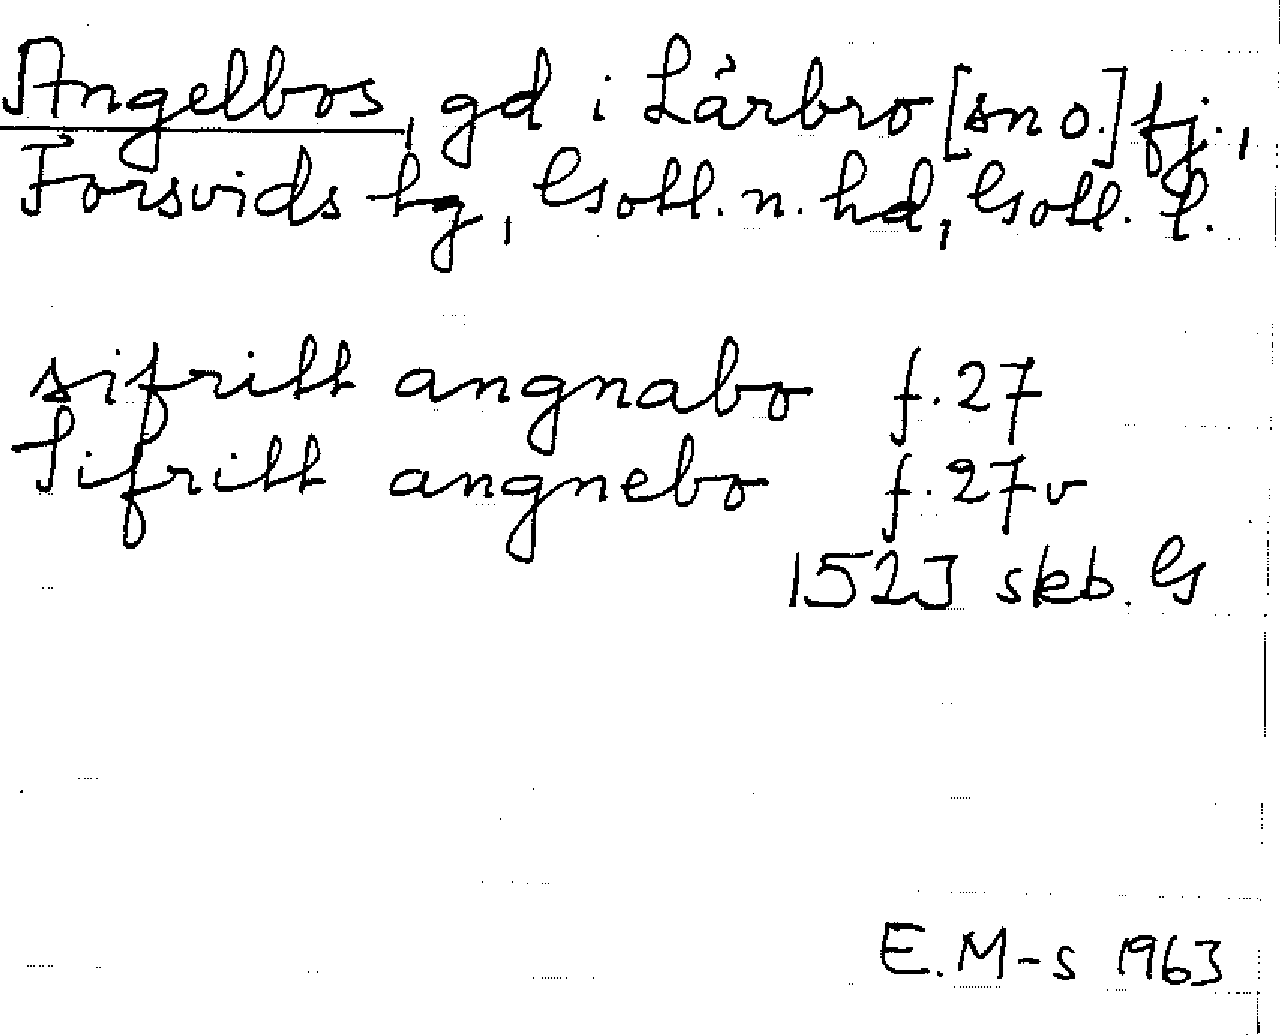 Angelbos, gd i Lärbro [sn o.] fj.,
Forsvids tg, Gotl. n. hd, Gotl. l.
sifritt angnabo f. 27
Sifritt angnebo f. 27v
1523 skb. G
E. M-s 1963